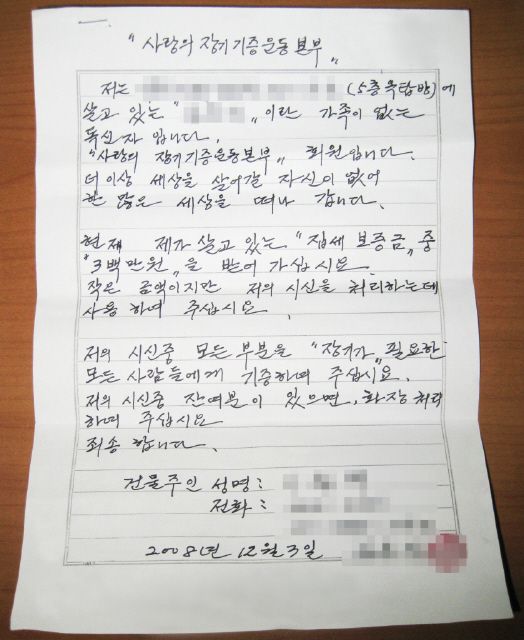 "사랑의 장기기증운동본부"
저는 (5층옥탑방)에
살고 있는 " "이란 가족이 없는
독신자 입니다.
"사랑의 장기기증운동본부" 회원입니다.
더이상 세상을 살어갈 자신이 없어
한 많은 세상을 떠나 갑니다.
현재 제가 살고 있는 "집세 보증금" 중
"3백만원"을 받어 가십시요.
작은 금액이지만 저의 시신을 처리하는데
사용 하여 주십시요.
저의 시신중 모든 부분을 "장기가" 필요한
모든 사람들에게 기증하여 주십시요.
저의 시신중 잔여분이 있으면, 화장 처리
하여 주십시요
죄송 합니다.
건물주인 성명:
전화:
2008년 12월 3일